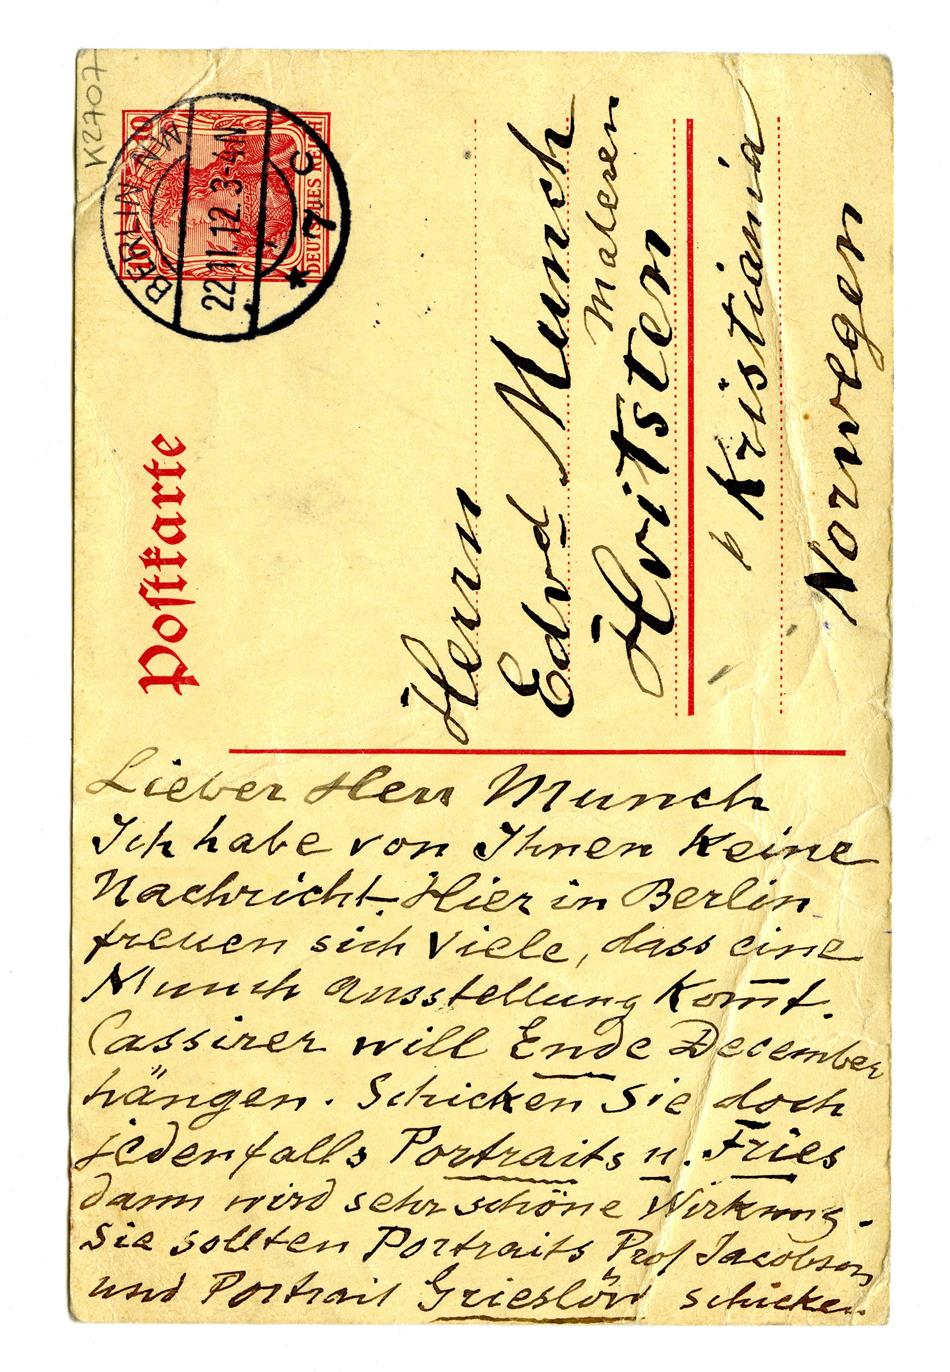 K2707
BERLIN NW
22.11.12.3-4N
* 7 c
DEUTSCHES REICH
10
Postkarte
Herrn
Edvd Munch
Maleren
Hvitsten
p Kristiania
Norwegen
Lieber Herr Munch
Ich habe von Ihnen Keine
Nachricht. Hier in Berlin
freuen sich Viele, dass eine
Munch Ausstellung Kom̅t.
Cassirer will Ende December
hängen. Schicken Sie doch
jedenfalls Portraits u. Fries
dann wird sehr schöne Wirkung.
Sie sollten Portraits Prof Jacobson
und Portrait Grieslöw schicken